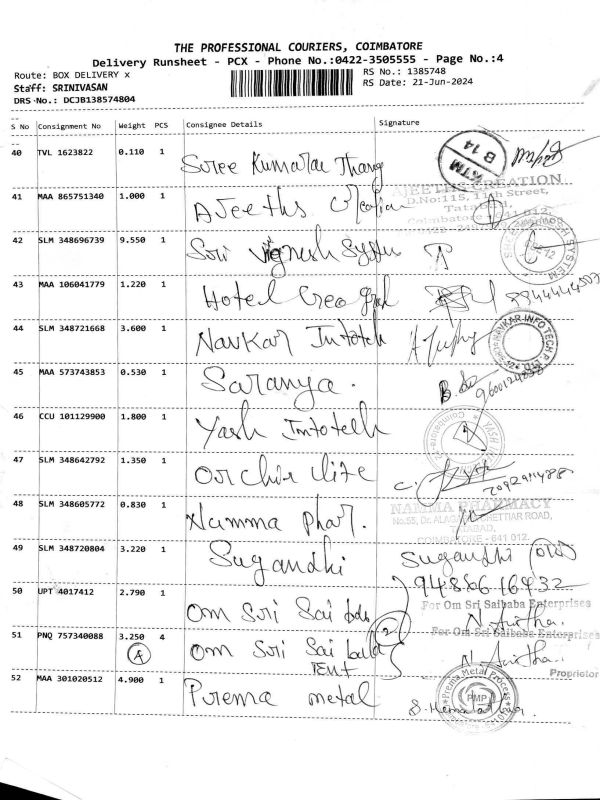 THE PROFESSIONAL COURIERS, COIMBATORE
Delivery Runsheet - PCX - Phone No.:0422-3505555 - Page No.:4
Route: BOX DELIVERY x RS No.: 1385748
Staff: SRINIVASAN RS Date: 21-Jun-2024
DRS No.: DCJB138574804
S No Consignment No Weight PCS Consignee Details Signature
40 TVL 1623822 0.110 1 Sree Kumaran Thang KTM B 14
41 MAA 865751340 1.000 1 AJeeths Creation AJEETHS CREATION
D.No:115, 11th Street,
Tatabad,
Coimbatore - 641 012.
42 SLM 348696739 9.550 1 Sri Vignesh System
43 MAA 106041779 1.220 1 Hotel
44 SLM 348721668 3.600 1 Navkar Infotech NAVKAR INFO TECH
45 MAA 573743853 0.530 1 Saranya.
46 CCU 101129900 1.800 1 Yash Infotech YASH Coimbatore
47 SLM 348642792 1.350 1
48 SLM 348605772 0.830 1 Namma phar. NAMMA PHARMACY
No.55, Dr. ROAD,
TATABAD,
COIMBATORE - 641 012.
49 SLM 348720804 3.220 1 Sugandhi Sugandhi
9488616432
50 UPT 4017412 2.790 1 Om Sri Sai For Om Sri Saibaba Enterprises
51 PNQ 757340088 3.250 4 Om Sri Sai 2 For Om Sri Saibaba Enterprises
4 Proprietor
52 MAA 301020512 4.900 1 Prema metal Prema Metal Process PMP